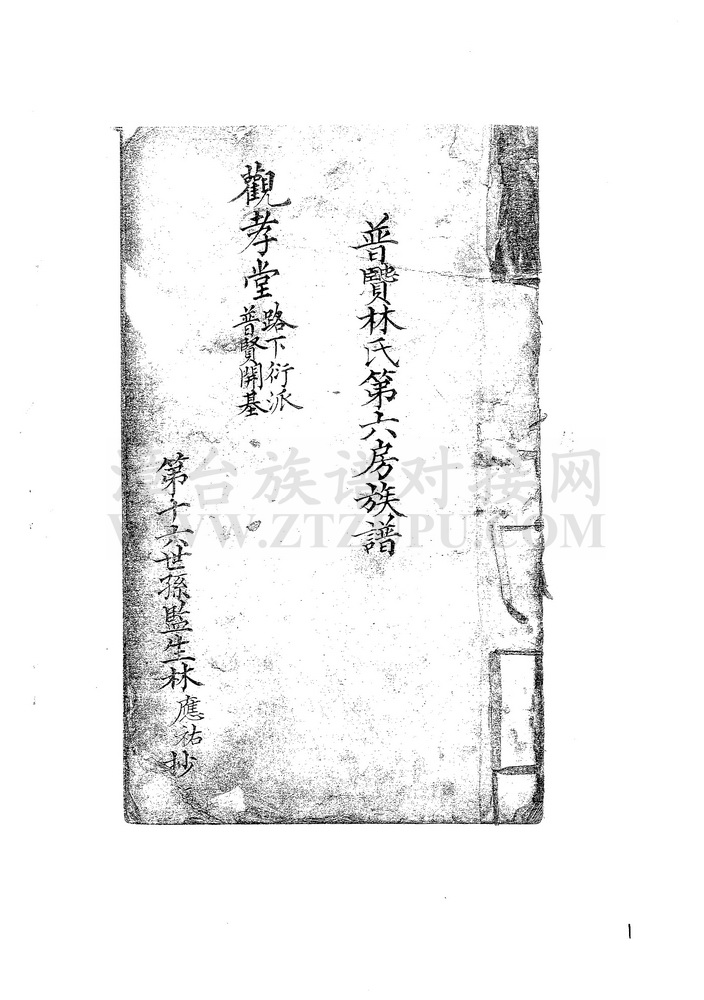 普賢林氏第六房族譜
觀孝堂
路下衍派
普賢開基
第十六世孫監生林應祐抄
漳台族谱对接网
WWW.ZTZUPU.COM
1